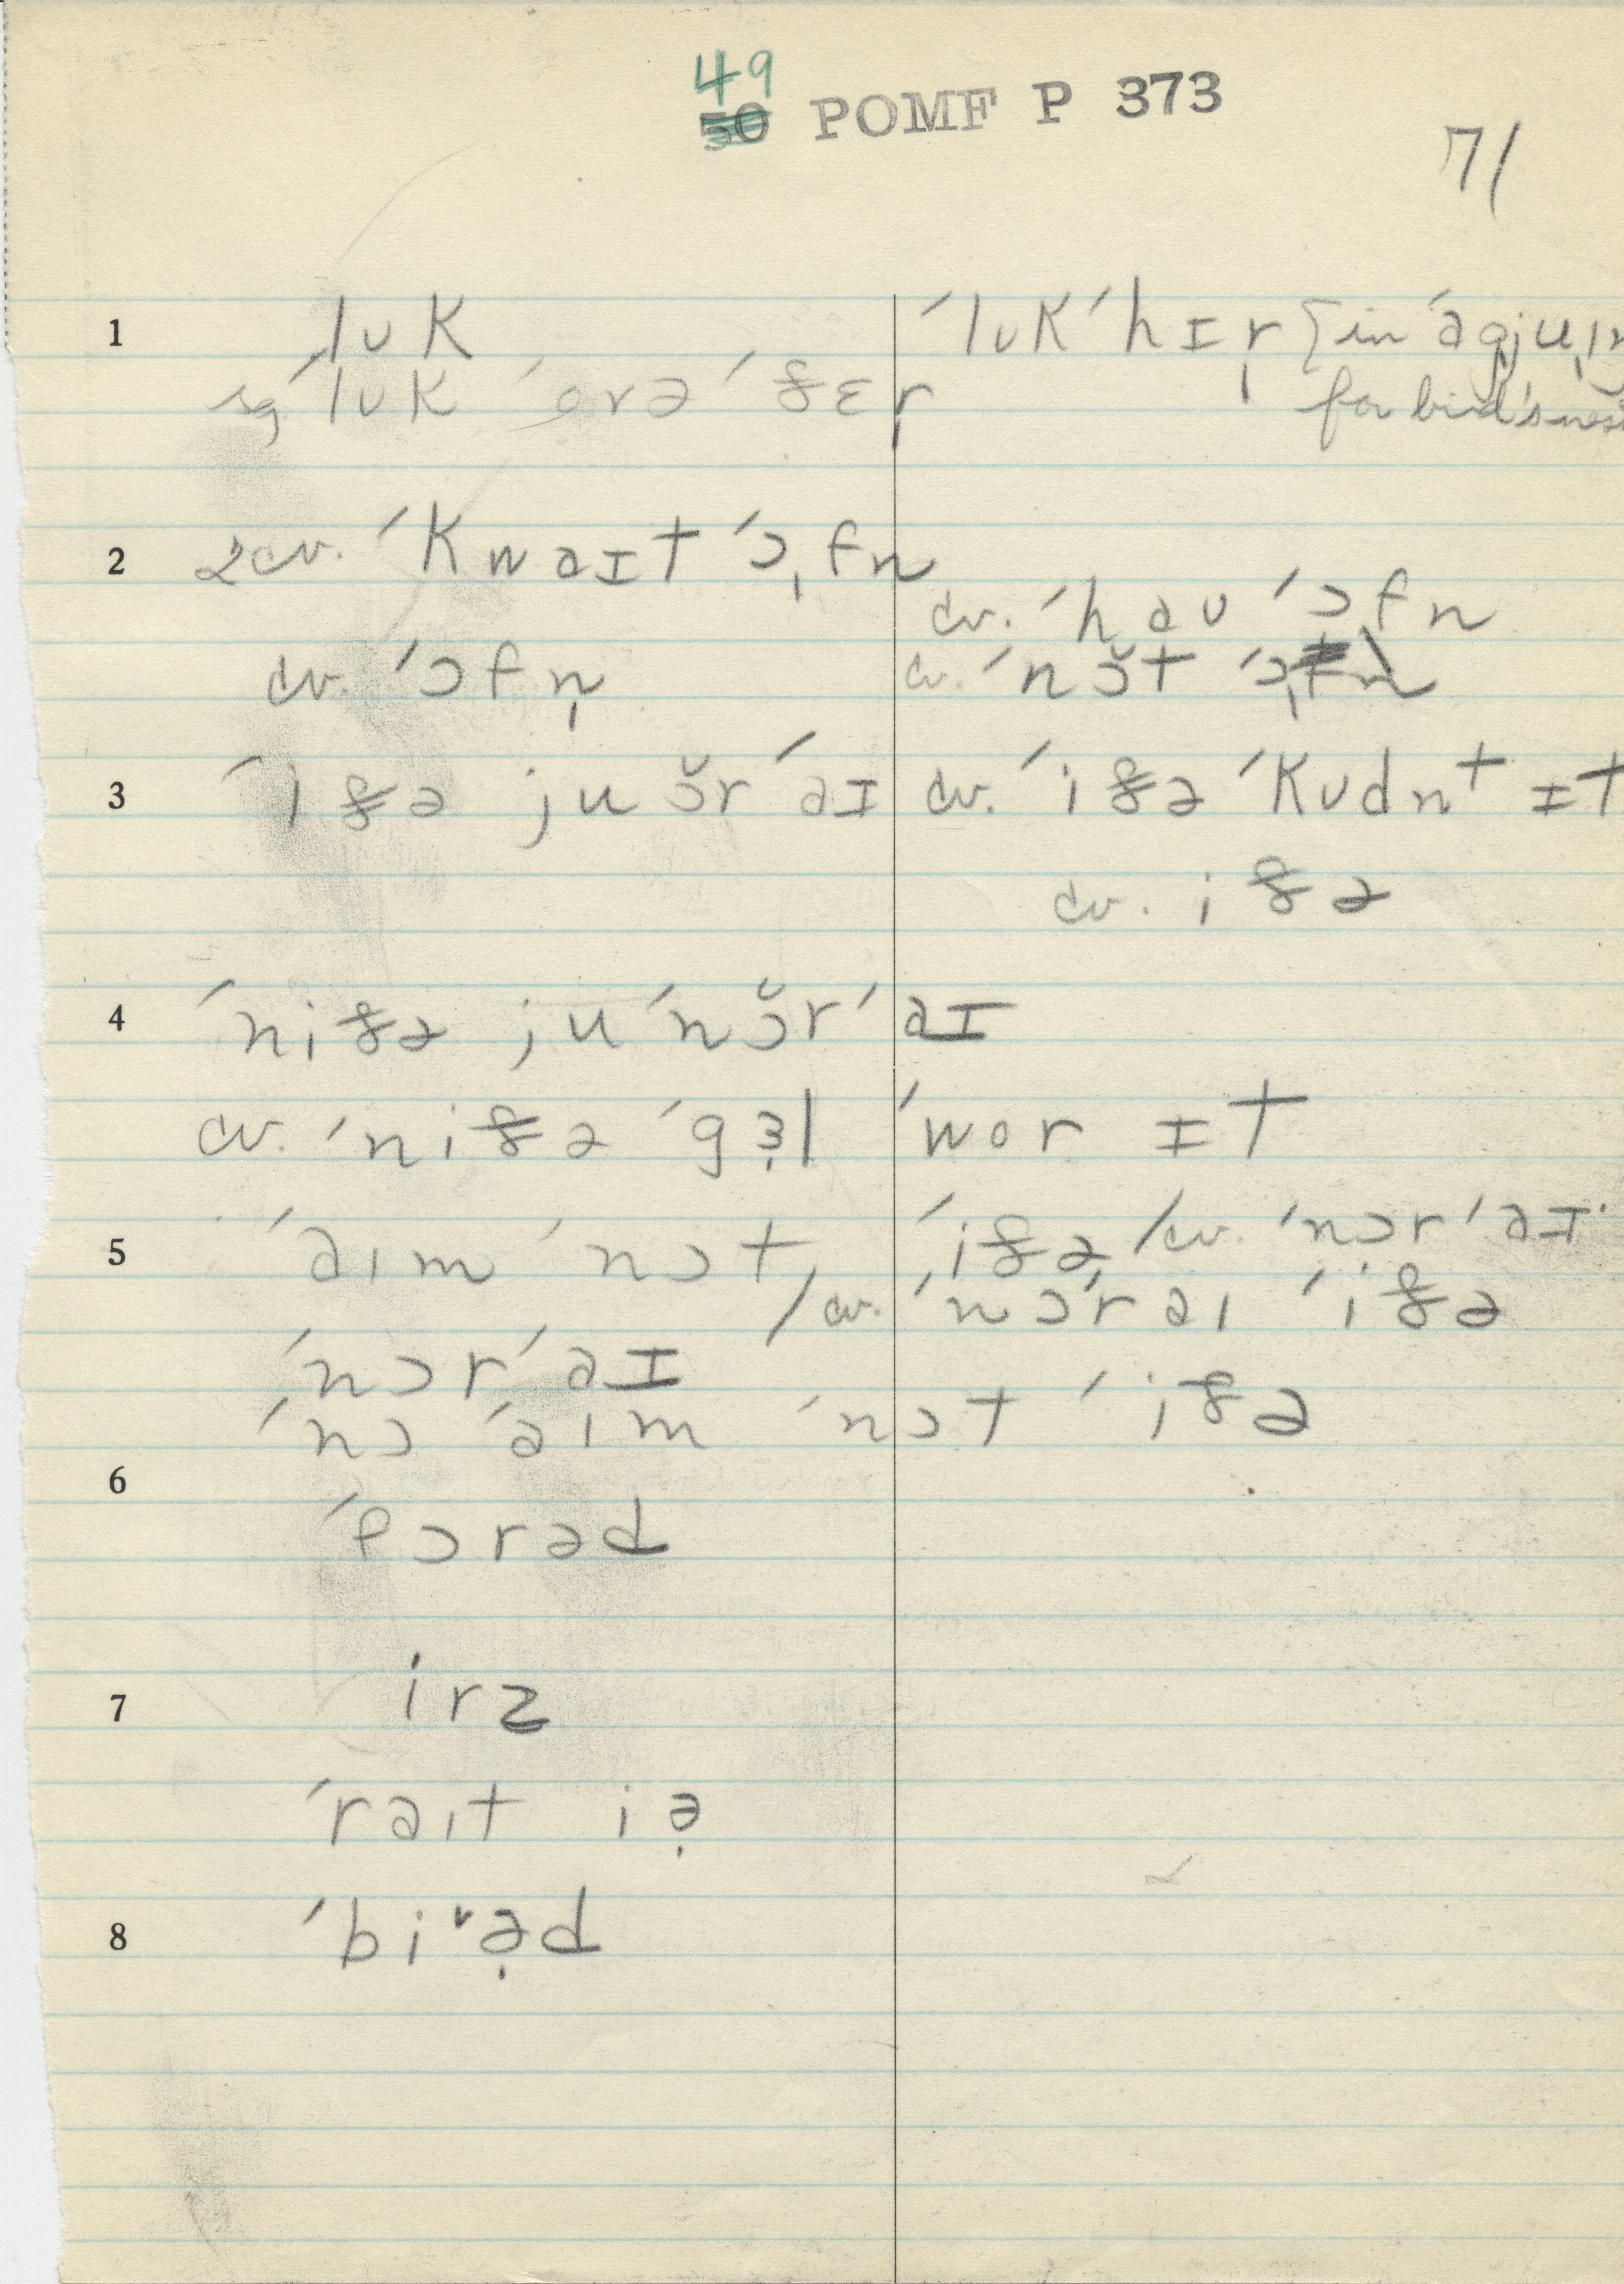 49
50 POMF P 373
71
1 ˈlʊk ˈlʊk ˈhɪr̩ [in ˈaɡju̩ɪn
sg ˈlʊk ˈovə ˈðɛr̩ for bird's nest
2 2 cv. ˈkwaɪt ˈɔ̩fn
cv. ˈhaʊ ˈɔfn
cv. ˈɔfn̩ cv. ˈnɔ̆t ˈɔ̩fn
3 ˈiðə ju ɔ̆r ˈaɪ cv. ˈiðə ˈkʊdnt ɪt
cv. iðə
4 ˈniðə ju ˈnɔ̆r ˈaɪ
cv. ˈniðə ˈɡɜ̣l ˈwor ɪt
5 ˈaɪm ˈnɔt ˈiðə / cv. ˈnɔr ˈaɪ
/ cv. ˈnɔr aɪ ˈiðə
ˈnɔr ˈaɪ
ˈnɔ ˈaɪm ˈnɔt ˈiðə
6
ˈfɔrəd
7 irz
ˈraɪt iə̣
8 ˈbi˅ə̣d